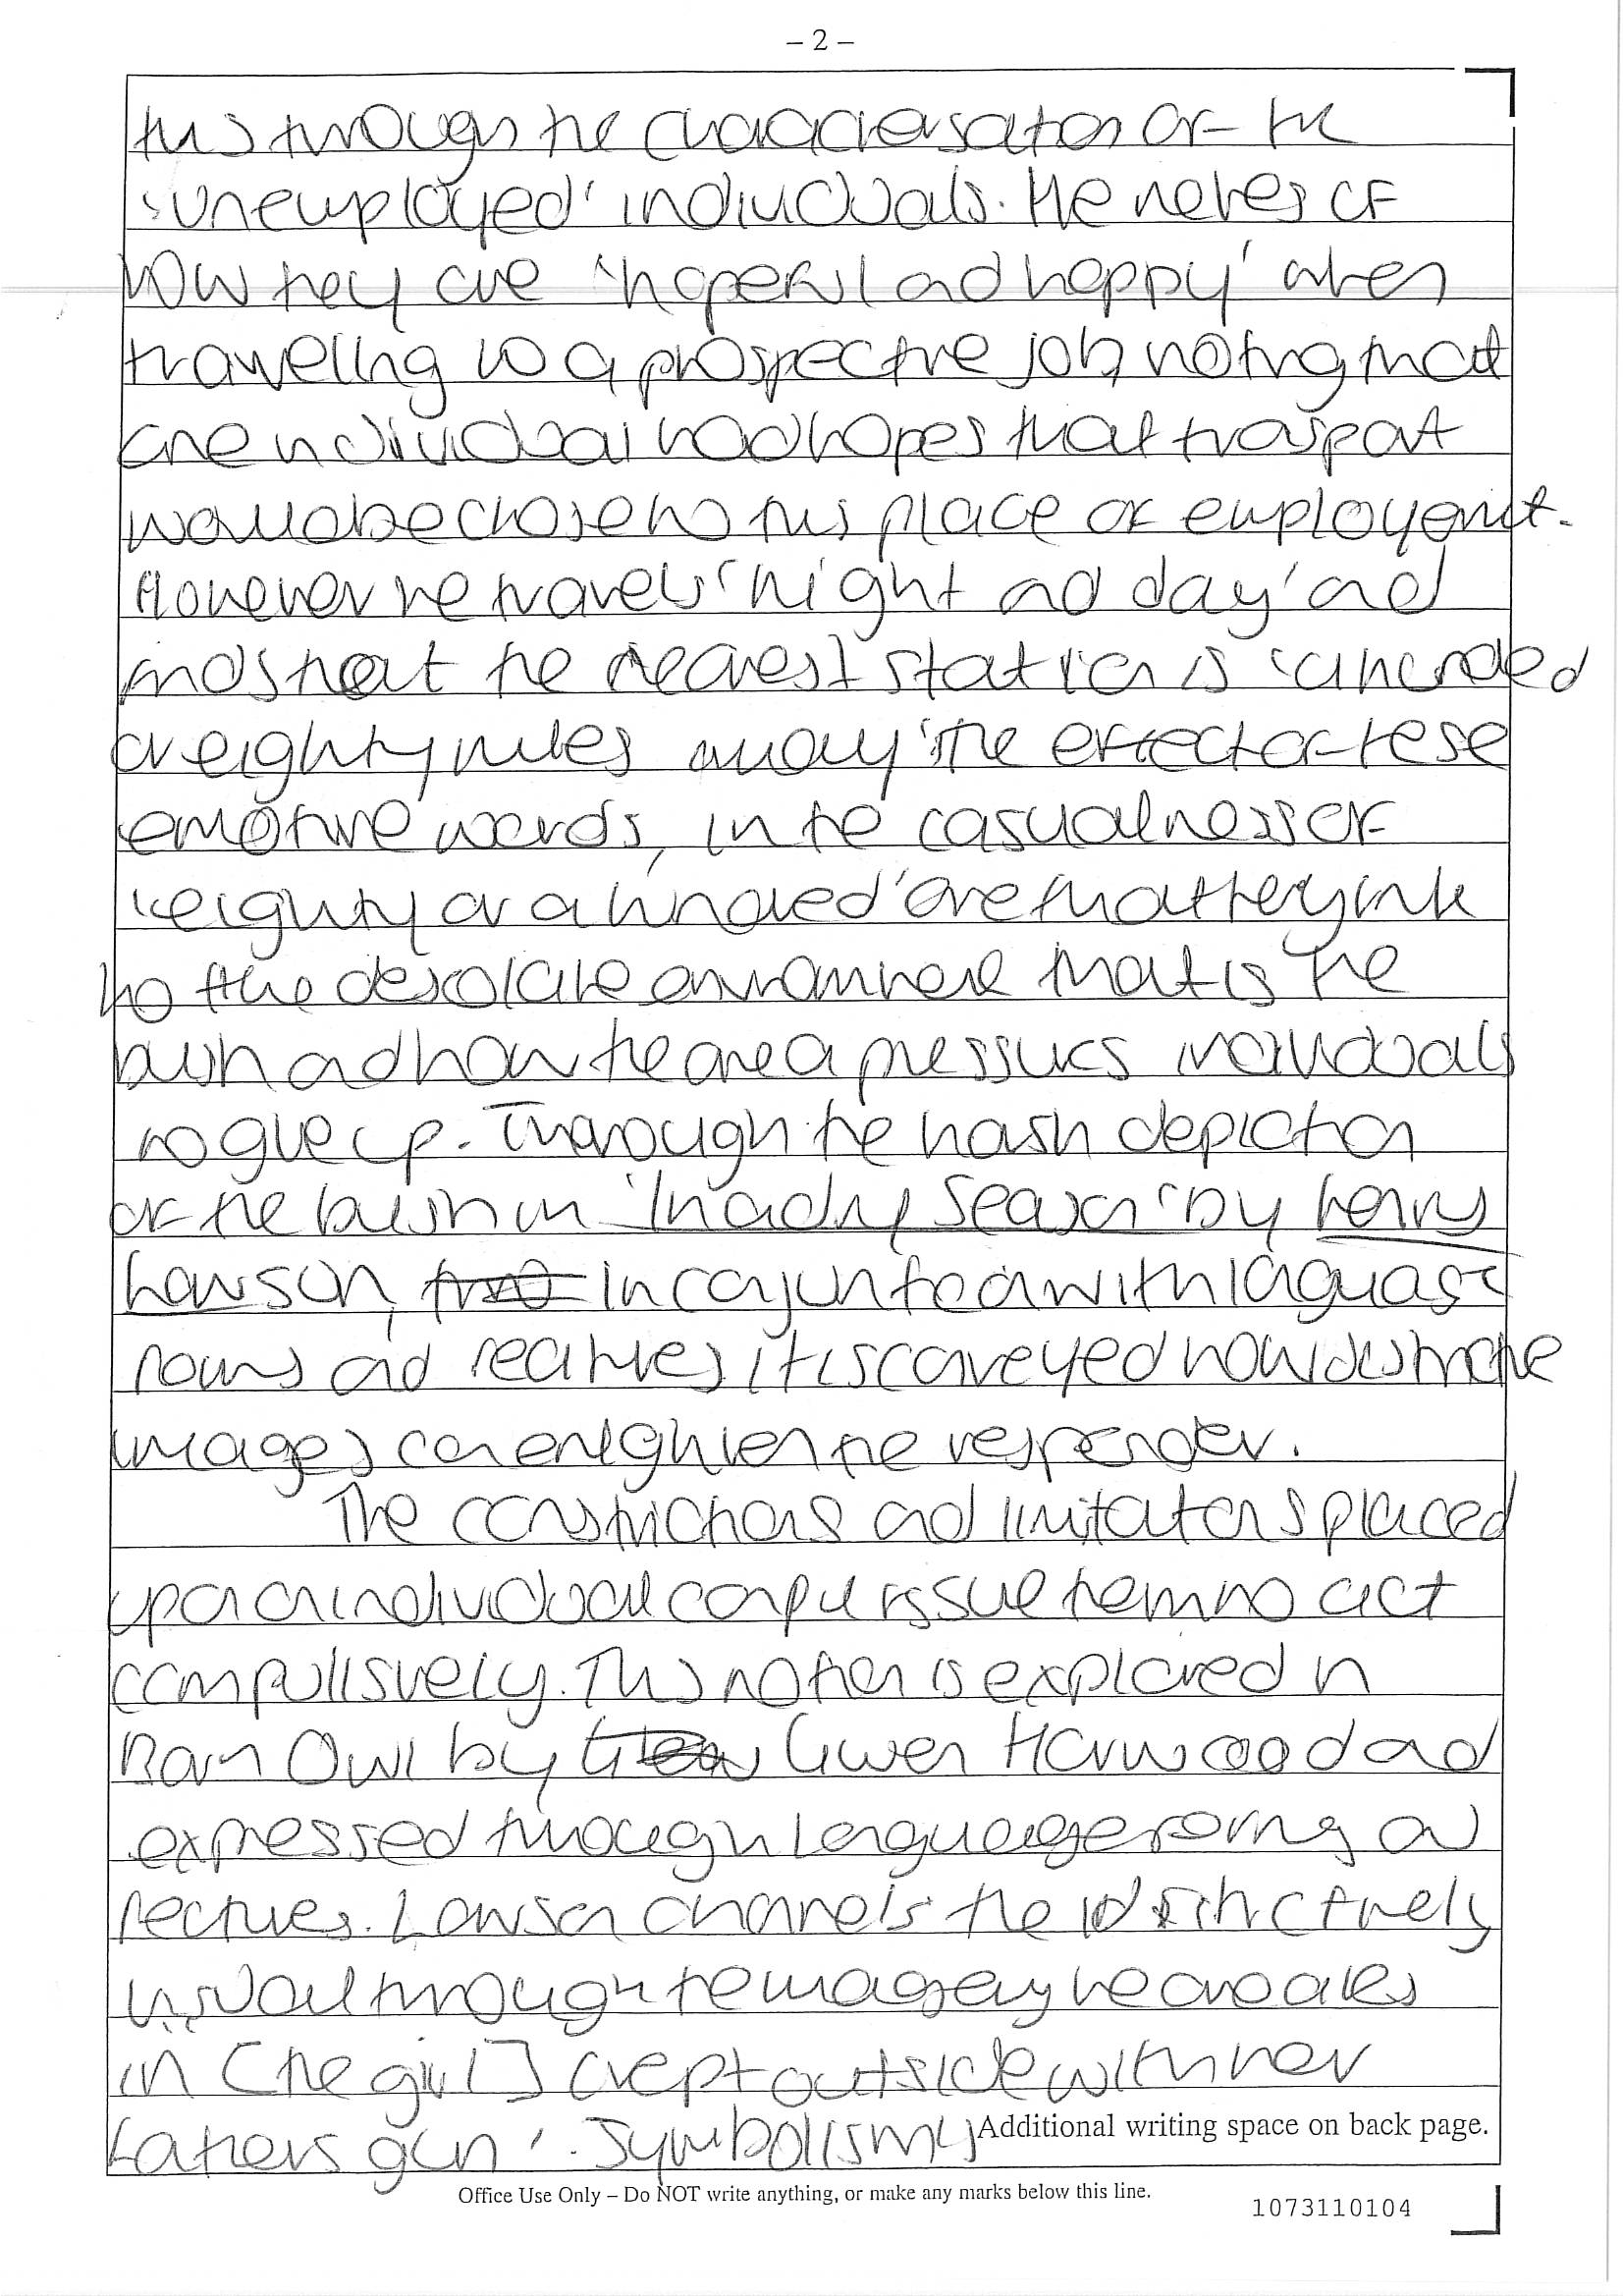 – 2 –
this through the characterisation of the
'unemployed' individuals. He notes of
how they are 'hopeful and happy' when
traveling to a prospective job, noting that
one individual had hopes that transport
would be close to his place of employment.
However he travels 'night and day' and
finds that the nearest station is 'a hundred
or eighty miles away'. The effect of these
emotive words, in the casualness of
'eighty or a hundred' are that they link
to the desolate environment that is the
bush and how the area pressures individuals
to give up. Through the harsh depiction
of the bush in 'In a dry season' by Henry
Lawson, in conjunction with language
forms and features it is conveyed how distinctive
images can enlighten the responder.
The constrictions and limitations placed
upon an individual can pursue them to act
compulsively. This notion is explored in
Barn Owl by Gwen Harwood and
expressed through language forms and
features. Lawson channels the distinctively
visual through the imagery he creates
in [the girl] crept outside with her
fathers gun'. Symbolism
Additional writing space on back page.
Office Use Only – Do NOT write anything, or make any marks below this line.
1073110104